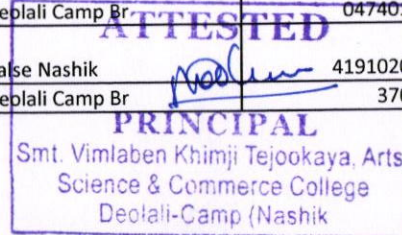 eolali Camp Br 04740
ATTESTED
alse Nashik 4191020
eolali Camp Br 370
PRINCIPAL
Smt. Vimlaben Khimji Tejookaya, Arts
Science & Commerce College
Deolali-Camp (Nashik